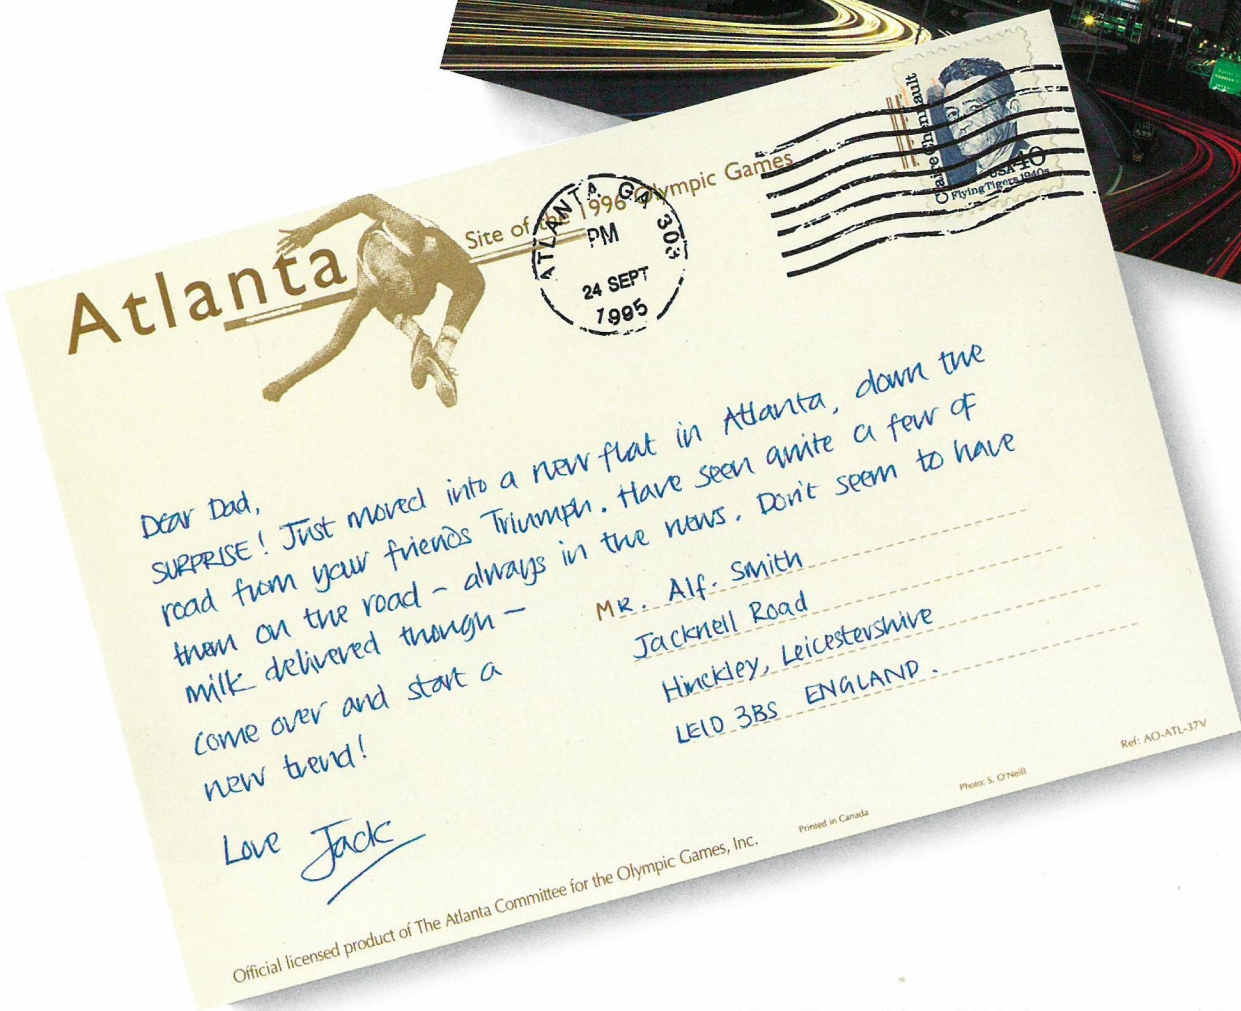 Atlanta
Site of the 1996 Olympic Games
ATLANTA, GA 303
PM
24 SEPT
1995
Claire Chennault
USA 40
Flying Tigers 1940s
Dear Dad,
SURPRISE! Just moved into a new flat in Atlanta, down the
road from your friends Triumph. Have seen quite a few of
them on the road - always in the news. Don't seem to have
milk delivered though -
come over and start a
new trend!
Love Jack
MR. Alf. Smith
Jacknell Road
Hinckley, Leicestershire
LE10 3BS ENGLAND.
Official licensed product of The Atlanta Committee for the Olympic Games, Inc.
Printed in Canada
Photo: S. O'Neill
Ref: AO-ATL-37V